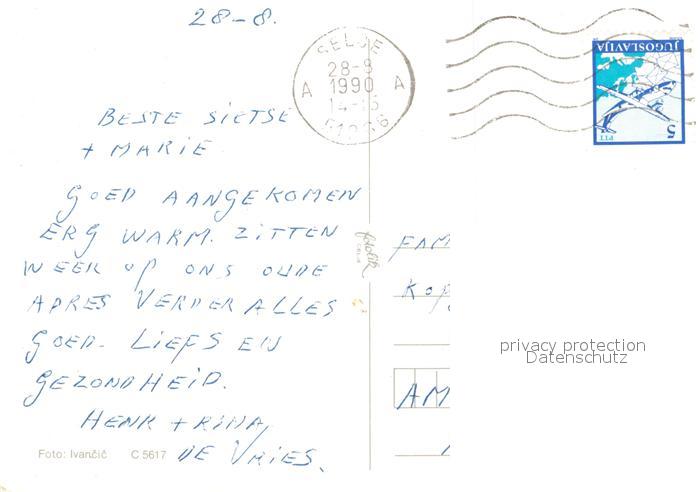 28-8.
SELCE
28-8
1990
A A
14-15
51266
JUGOSLAVIJA
5
PTT
BESTE SIETSE
+ MARIE.
GOED AANGEKOMEN
ERG WARM. ZITTEN
WEER OP ONS OUDE
ADRES VERDER ALLES
GOED. LIEFS EN
GEZONDHEID.
HENK + RINA,
DE VRIES.
fotolik
CELJE
FAM
KOP
AM
privacy protection
Datenschutz
Foto: Ivančič C 5617